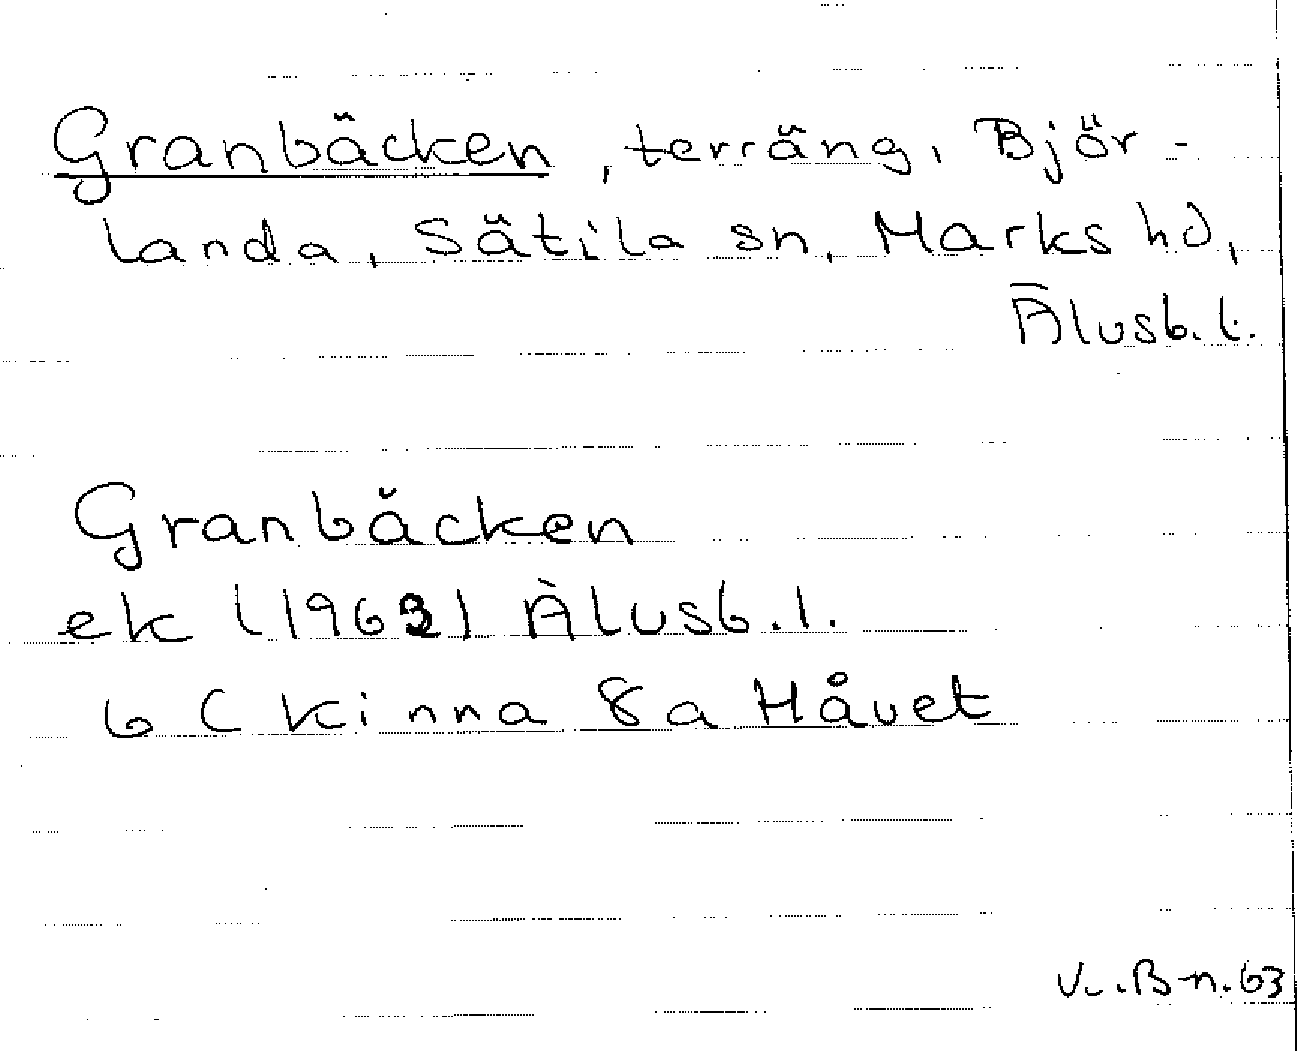 Granbäcken, terräng, Björ-
landa, Sätila sn, Marks hd,
Älvsb. l.
Granbäcken
ek (1963) Älvsb. l.
6 C Kinna 8a Håvet
V. B-n. 63